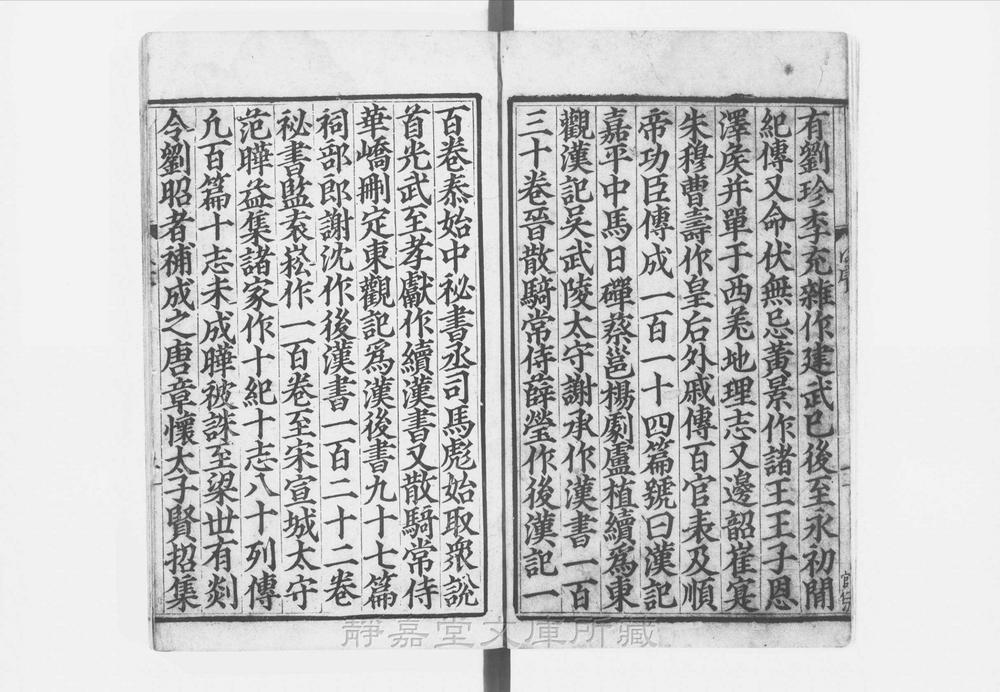 有劉珍李充雜作建武已後至永初閒
紀傳又命伏無忌黃景作諸王王子恩
澤矦并單于西羌地理志又邊韶崔寔
朱穆曹壽作皇后外戚傳百官表及順
帝功臣傳成一百一十四篇號曰漢記
嘉平中馬日磾蔡邕楊劇盧植續爲東
觀漢記吳武陵太守謝承作漢書一百
三十卷晉散騎常侍薛瑩作後漢記一
百卷泰始中祕書丞司馬彪始取衆說
首光武至孝獻作續漢書又散騎常侍
華嶠刪定東觀記爲漢後書九十七篇
祠部郎謝沈作後漢書一百二十二卷
祕書監袁崧作一百卷至宋宣城太守
范曄益集諸家作十紀十志八十列傳
凢百篇十志未成曄被誅至梁世有剡
令劉昭者補成之唐章懷太子賢招集
靜嘉堂文庫所藏